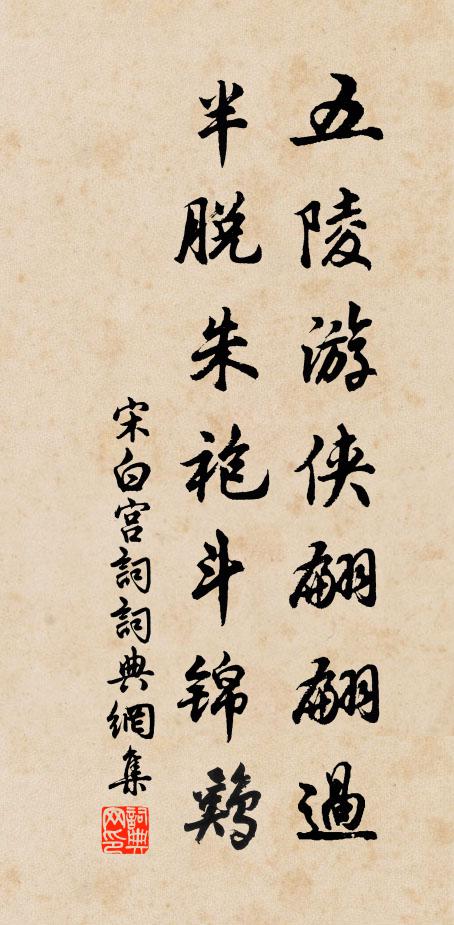 五陵游侠翩翩過
半脱朱袍斗锦鷄
宋白宫詞詞典網集
詞典网印